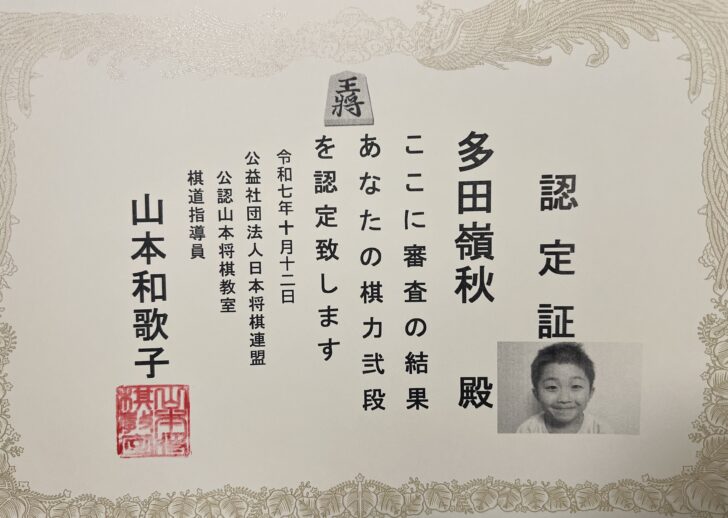 認定証
多田嶺秋 殿
ここに審査の結果
あなたの棋力弐段
を認定致します
王将
令和七年十月十二日
公益社団法人日本将棋連盟
公認山本将棋教室
棋道指導員
山本和歌子